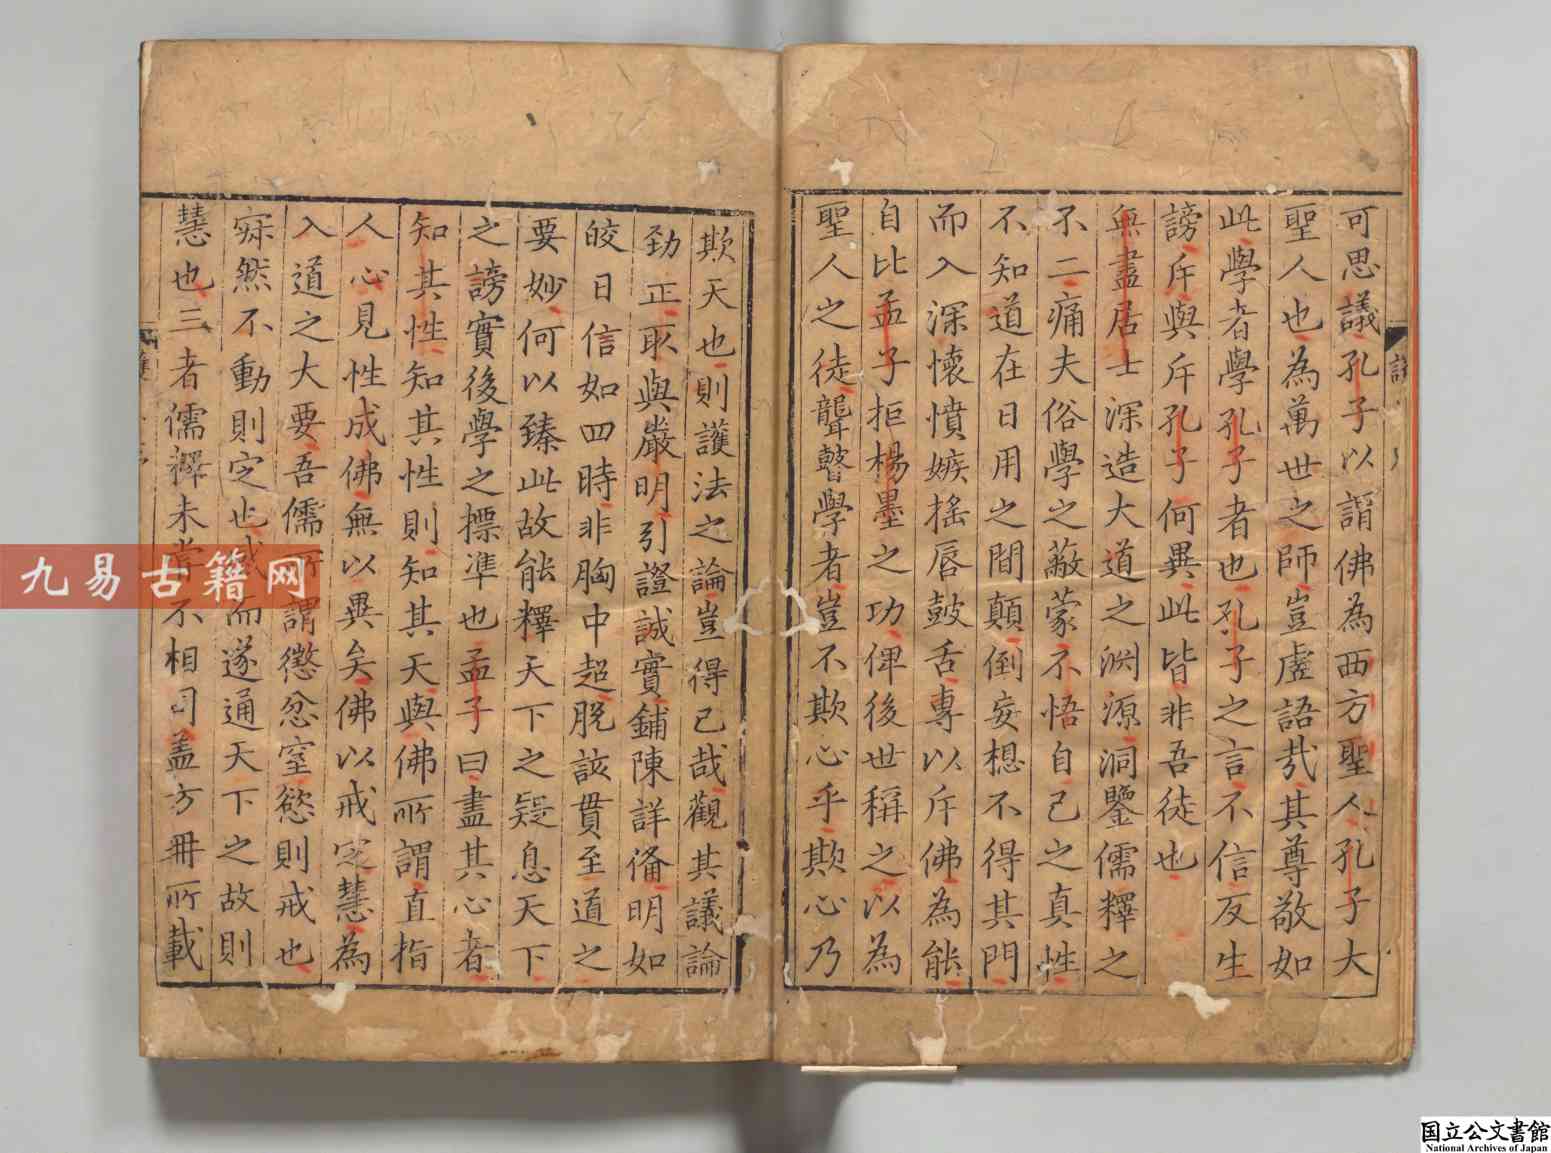 可思議孔子以謂佛為西方聖人孔子大
聖人也為萬世之師豈虛語哉其尊敬如
此學者學孔子者也孔子之言不信反生
謗斥與斥孔子何異此皆非吾徒也
無盡居士深造大道之淵源洞鑒儒釋之
不二痛夫俗學之蔽蒙不悟自己之真性
不知道在日用之間顛倒妄想不得其門
而入深懷憤嫉搖唇鼓舌專以斥佛為能
自比孟子拒楊墨之功俾後世稱之以為
聖人之徒聾瞽學者豈不欺心乎欺心乃
欺天也則護法之論豈得已哉觀其議論
勁正取與嚴明引證誠實鋪陳詳備明如
皎日信如四時非胸中超脫該貫至道之
要妙何以臻此故能釋天下之疑息天下
之謗實後學之標準也孟子曰盡其心者
知其性知其性則知其天與佛所謂直指
人心見性成佛無以異矣佛以戒定慧為
入道之大要吾儒所謂懲忿窒慾則戒也
寂然不動則定也感而遂通天下之故則
慧也三者儒釋未嘗不相同盖方冊所載
九易古籍网
国立公文書館
National Archives of Japan